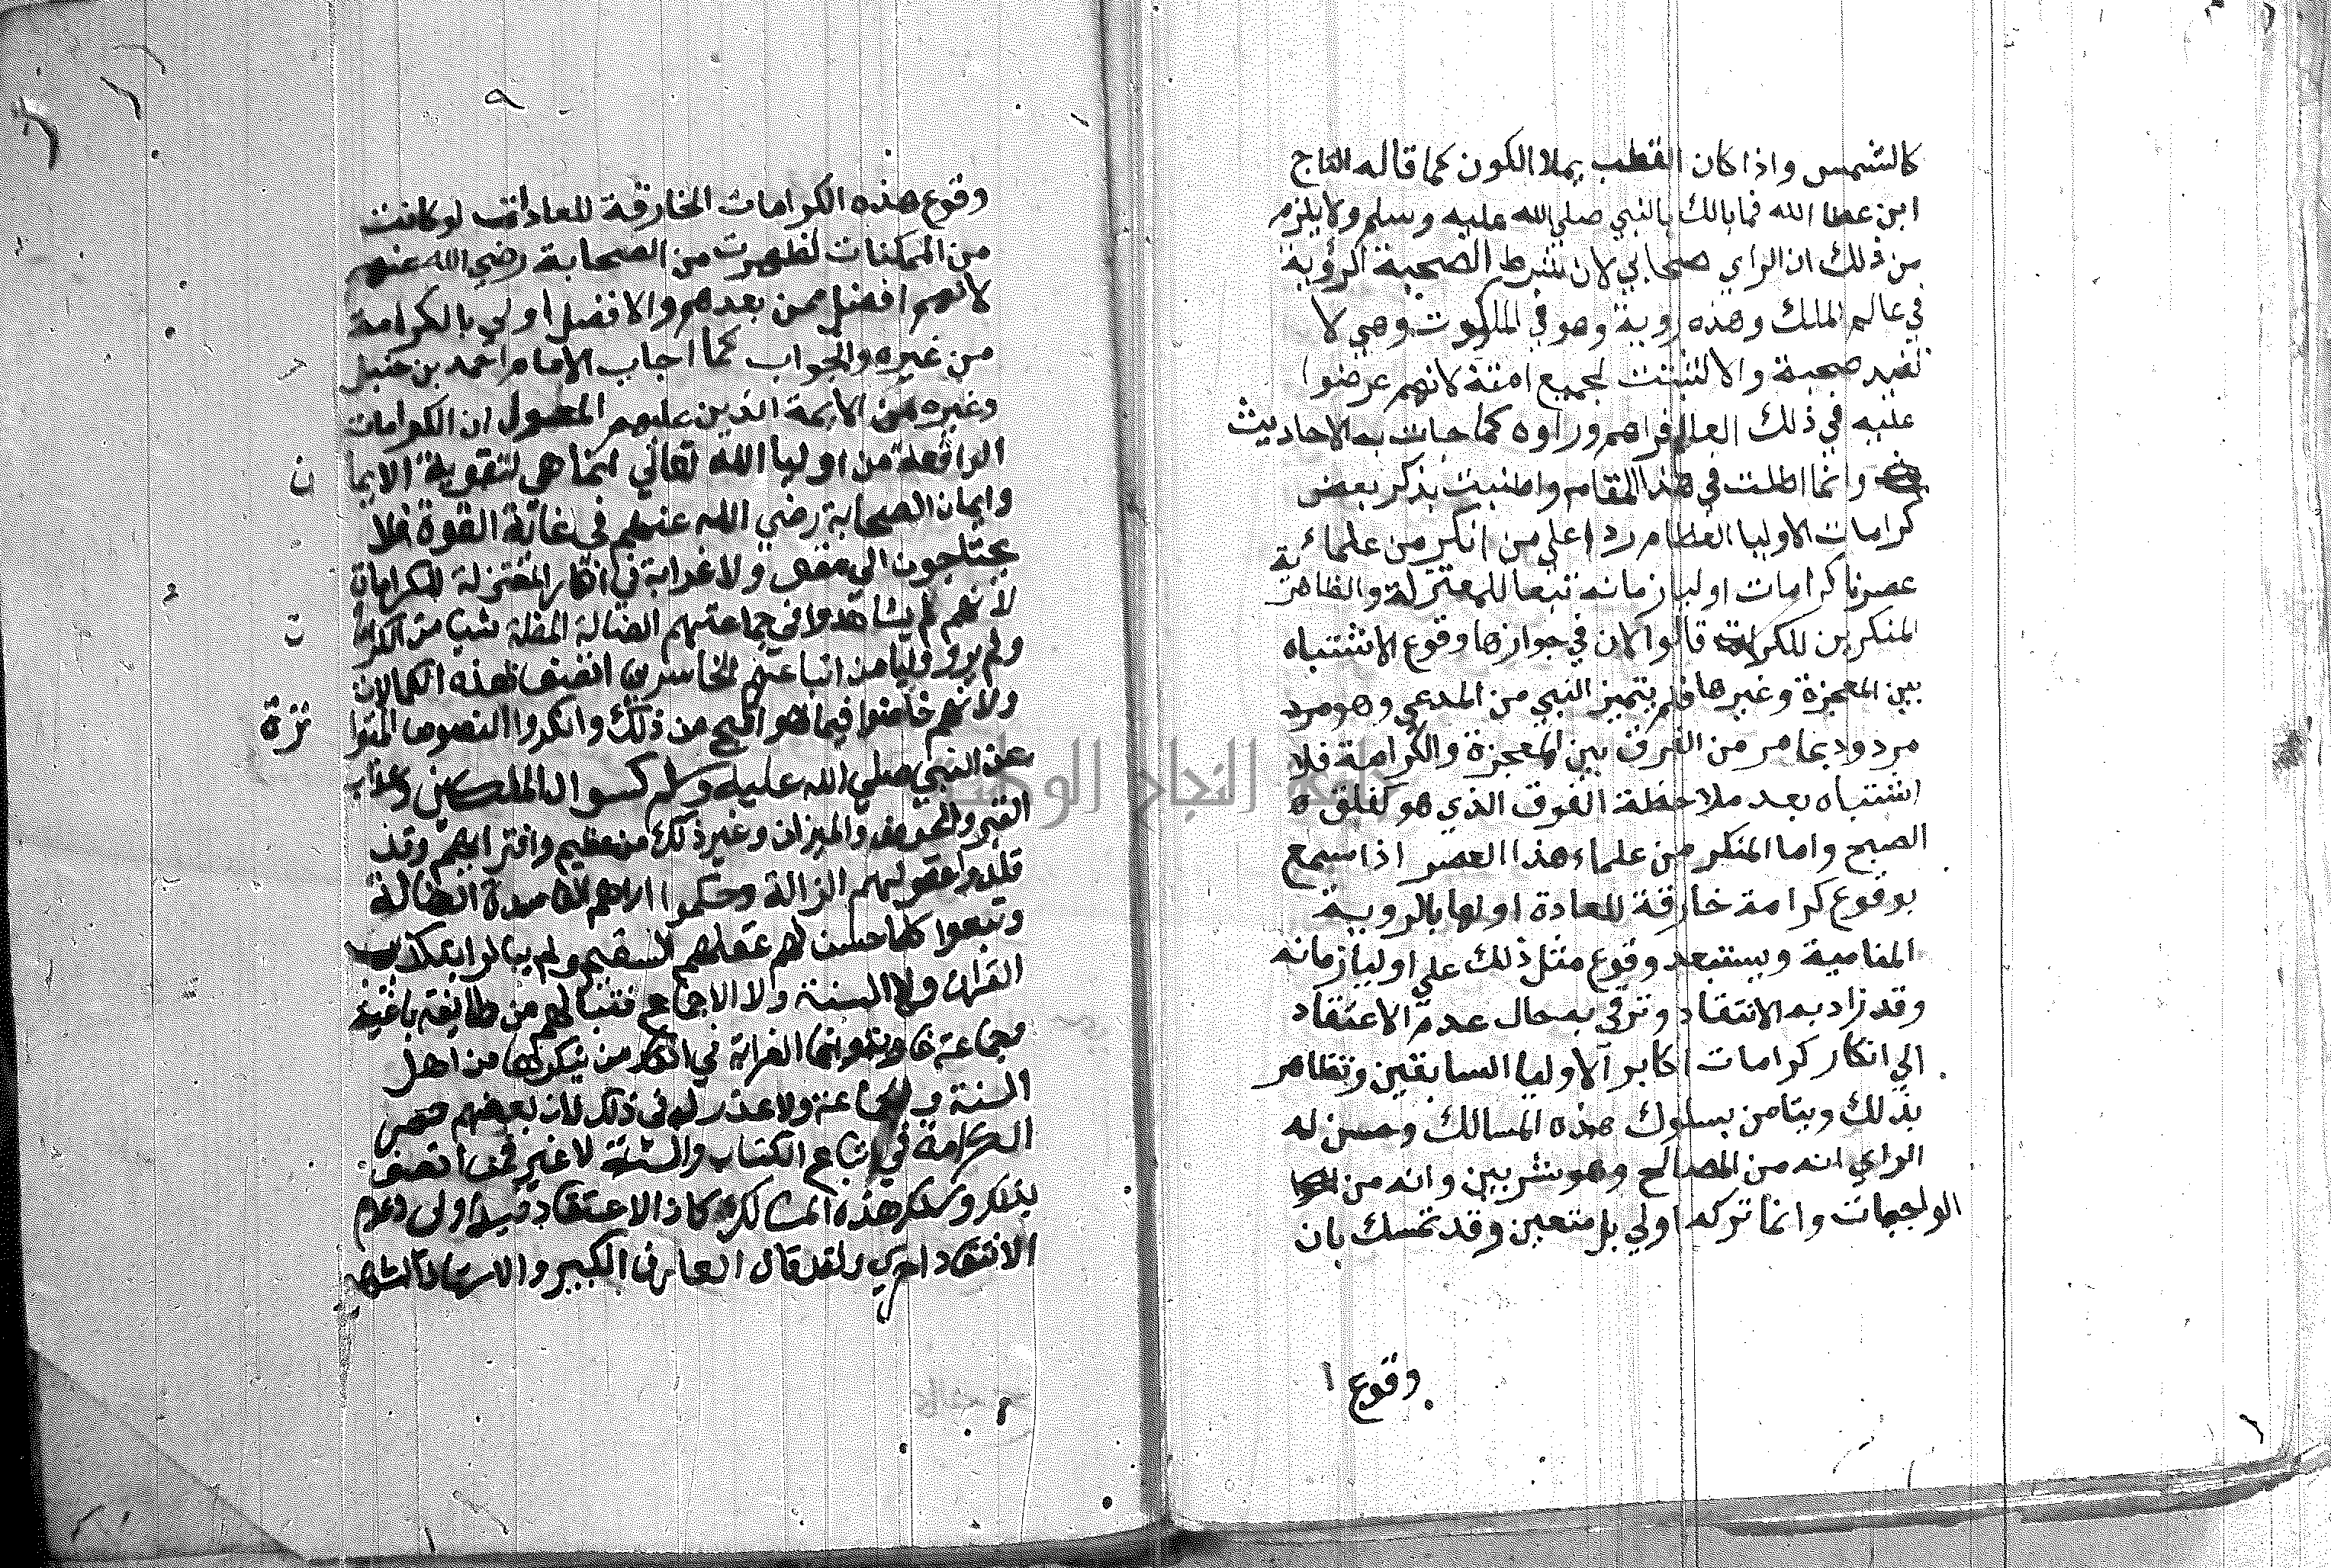 كالشمس واذا كان القطب يملا الكون كما قاله التاج
ابن عطا الله فما بالك بالنبي صلي الله عليه وسلم ولا يلزم
من ذلك ان الراي صحابي لان شرط الصحبة الرؤية
في عالم الملك وهذه روية وهو في الملكوت وهي لا
تفيد صحبة والا لثبتت لجميع امته لانهم عرضوا
عليه في ذلك العالم فراهم وراوه كما جات به الاحاديث
وانما اطلت في هذا المقام واطنبت بذكر بعض
كرامات الاوليا العظام ردا علي من انكر من علماء
عصرنا كرامات اوليا زمانه تبعا للمعتزلة والظاهرية
المنكرين للكرامة قالوا لان في جوازها وقوع الاشتباه
بين المعجزة وغيرها فلم يتميز النبي من المدعي وهو مرد
مردود بما مر من الفرق بين المعجزة والكرامة فلا
اشتباه بعد ملاحظة الفرق الذي هو كفلق
الصبح واما المنكر من علماء هذا العصر اذا سمع
بوقوع كرامة خارقة للعادة اولها بالروية
المنامية ويستبعد وقوع مثل ذلك علي اوليا زمانه
وقد زاد به الانتقاد وترقي به حال عدم الاعتقاد
الي انكار كرامات اكابر الاوليا السابقين وتظاهر
بذلك ويتامن بسلوك هذه المسالك وحسن له
الراي انه من المصالح وهو شر بين وانه من
الواجبات وانما تركه اولي بل متعين وقد تمسك بان
وقوع
٩
وقوع هذه الكرامات الخارقة للعادات لو كانت
من الممكنات لظهرت من الصحابة رضي الله عنهم
لانهم افضل ممن بعدهم والافضل اولي بالكرامة
من غيره والجواب كما اجاب الامام احمد بن حنبل
وغيره من الايمة الذين عليهم المعول ان الكرامات
الواقعة من اوليا الله تعالي انما هي لتقوية الايمان
وايمان الصحابة رضي الله عنهم في غاية القوة فلا
يحتاجون الي مقو ولا غرابة في انكار المعتزلة للكرامات
لانهم لم يشاهدوا في جماعتهم الضالة المضلة شيا من الكرامات
ولم يروا وليا من اتباعهم الخاسرين اتصف بهذه الكمالات
ولانهم خاضوا فيما هو اقبح من ذلك وانكروا النصوص المتواترة
عن النبي صلي الله عليه وسلم كسوال الملكين وعذاب
القبر والحوض والميزان وغير ذلك من عظيم وافترايهم وقد
قلدوا عقولهم الزالة وحكموا اراهم الفاسدة الضالة
وتبعوا كلما حسن لهم عقلهم السقيم ولم يبالوا بتكذيب
القران ولا السنة ولا الاجماع فتبا لهم من طايفة باغية
وجماعة وانما الغرابة في انكار من ينكرها من اهل
السنة والجماعة ولا عذر له في ذلك لان بعضهم حصر
الكرامة في اتباع الكتاب والسنة لا غير فمن اتصف
بذلك وسلك هذه المسالك كان الاعتقاد فيه اولي وعدم
الانتقاد احري ولقد قال العارف الكبير والاستاذ الشهير